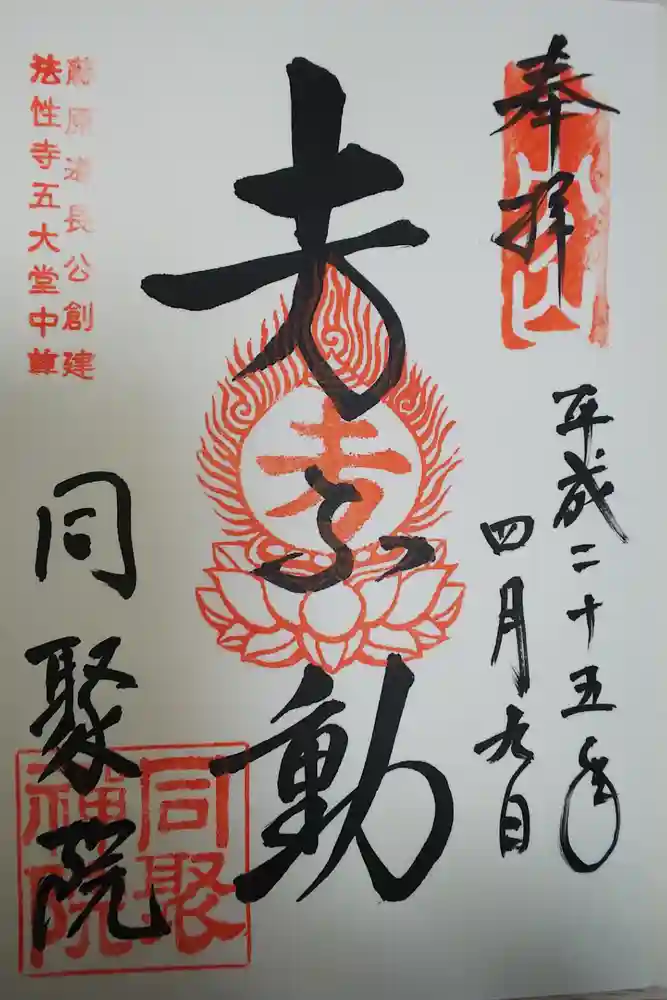 奉拝
平成二十五年
四月九日
十万不動
十万
藤原道長公創建
法性寺五大堂中尊
同聚院
同聚
禅院